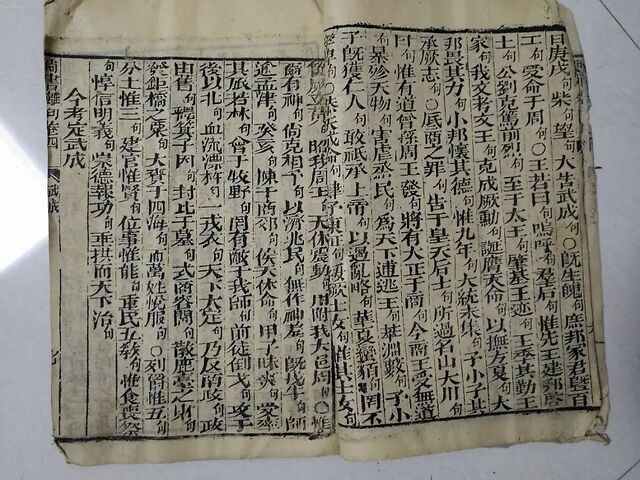 日庚戌句柴句望句大告武成句○旣生魄句庶邦冢君曁百
工句受命于周句○王若曰句嗚呼句羣后句惟先王建邦啟
土句公劉克篤前烈句至于太王句肇基王迹句王季其勤王
家句我文考文王句克成厥勳句誕膺天命句以撫方夏句大
邦畏其力句小邦懷其德句惟九年句大統未集句予小子其
承厥志句○厎商之罪句告于皇天后土句所過名山大川句
曰句惟有道曾孫周王發句將有大正于商句今商王受無道
句暴殄天物句害虐烝民句爲天下逋逃主句萃淵藪句予小
子旣獲仁人句敢祗承上帝句以遏亂略句華夏蠻貊句罔不
成命句肆予東征句綏厥士女句惟其士女句
昭我周王句天休震動句用附我大邑周句○惟
爾有神句尚克相予句以濟兆民句無作神羞句旣戊午句師
逾孟津句癸亥句陳于商郊句俟天休命句甲子昧爽句受率
其旅若林句會于牧野句罔有敵于我師句前徒倒戈句攻于
後以北句血流漂杵句一戎衣句天下大定句乃反商政句政
由舊句釋箕子囚句封比干墓句式商容閭句散鹿臺之財句
發鉅橋之粟句大賚于四海句而萬姓悅服句○列爵惟五句
分土惟三句建官惟賢句位事惟能句重民五敎句惟食喪祭
句惇信明義句崇德報功句垂拱而天下治句
今考定武成
尚書離句卷四 武成